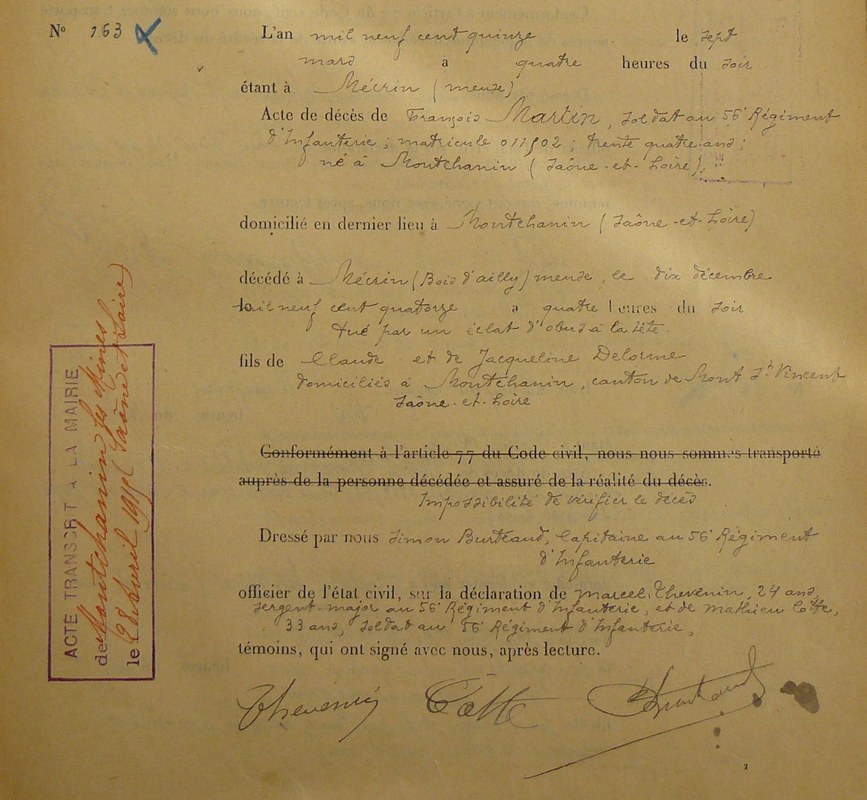 N° 163
L'an mil neuf cent quinze le sept
mars a quatre heures du soir
étant à Mécrin (meuse)
Acte de décès de François Martin, soldat au 56e Régiment
d'Infanterie ; matricule 011502 ; trente quatre ans ;
né à Montchanin (Saône-et-Loire),
domicilié en dernier lieu à Montchanin (Saône-et-Loire)
décédé à Mécrin (Bois d'ailly) meuse, le dix décembre
mil neuf cent quatorze a quatre heures du soir
tué par un éclat d'obus à la tête.
fils de Claude et de Jacqueline Delorme
domiciliés à Montchanin, canton de Mont St Vincent
Saône-et-Loire
Conformément à l'article 77 du Code civil, nous nous sommes transporté
auprès de la personne décédée et assuré de la réalité du décès.
Impossibilité de vérifier le décès
Dressé par nous Simon Burteaud, Capitaine au 56e Régiment
d'Infanterie
officier de l'état civil, sur la déclaration de Marcel Thevenin, 24 ans,
sergent-major au 56e Régiment d'Infanterie, et de Mathieu Cotte,
33 ans, soldat au 56e Régiment d'Infanterie,
témoins, qui ont signé avec nous, après lecture.
Thevenin Cotte Burteaud
ACTE TRANSCRIT A LA MAIRIE
de Montchanin les Mines
le 28 avril 1915 (Saône et Loire)